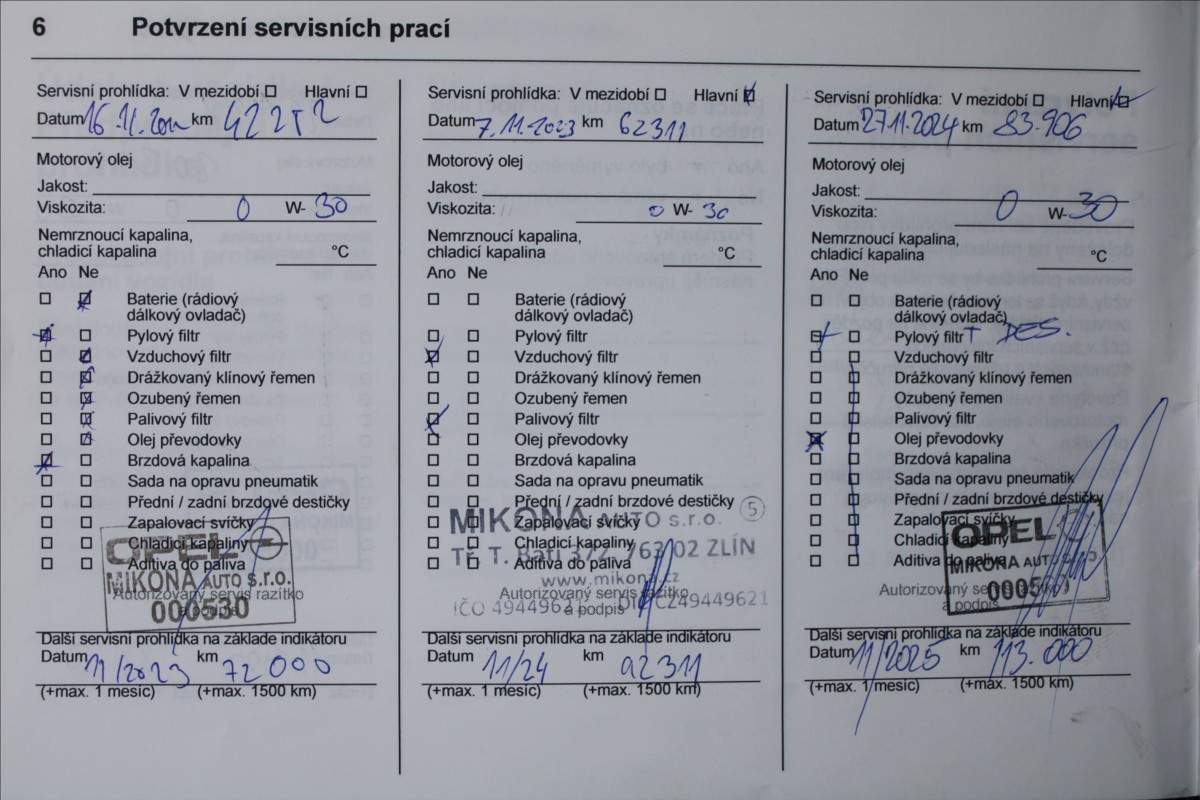 6 Potvrzení servisních prací
Servisní prohlídka: V mezidobí Hlavní
Datum 16.11. km
Motorový olej
Jakost:
Viskozita: 0 W- 30
Nemrznoucí kapalina,
chladicí kapalina °C
Ano Ne
Baterie (rádiový
dálkový ovladač)
Pylový filtr
Vzduchový filtr
Drážkovaný klínový řemen
Ozubený řemen
Palivový filtr
Olej převodovky
Brzdová kapalina
Sada na opravu pneumatik
Přední / zadní brzdové destičky
Zapalovací svíčky
Chladicí kapaliny
Aditiva do paliva
OPEL
MIKONA AUTO s.r.o.
Autorizovaný servis razítko
000530
a podpis
Další servisní prohlídka na základe indikátoru
Datum 11/2023 km 72 000
(+max. 1 mesíc) (+max. 1500 km)
Servisní prohlídka: V mezidobí Hlavní
Datum 7.11.2023 km 62311
Motorový olej
Jakost:
Viskozita: 0 W- 30
Nemrznoucí kapalina,
chladicí kapalina °C
Ano Ne
Baterie (rádiový
dálkový ovladač)
Pylový filtr
Vzduchový filtr
Drážkovaný klínový řemen
Ozubený řemen
Palivový filtr
Olej převodovky
Brzdová kapalina
Sada na opravu pneumatik
Přední / zadní brzdové destičky
MIKONA AUTO s.r.o. 5
Zapalovací svíčky
Chladicí kapaliny
Tř. T. Bati 372, 763 02 ZLÍN
Aditiva do paliva
www.mikona.cz
Autorizovaný servis razítko
IČO 49449621 DIČ CZ49449621
a podpis
Další servisní prohlídka na základe indikátoru
Datum 11/24 km 92311
(+max. 1 mesíc) (+max. 1500 km)
Servisní prohlídka: V mezidobí Hlavní
Datum 27.11.2024 km 83.906
Motorový olej
Jakost:
Viskozita: 0 W- 30
Nemrznoucí kapalina,
chladicí kapalina °C
Ano Ne
Baterie (rádiový
dálkový ovladač)
Pylový filtr + DES.
Vzduchový filtr
Drážkovaný klínový řemen
Ozubený řemen
Palivový filtr
Olej převodovky
Brzdová kapalina
Sada na opravu pneumatik
Přední / zadní brzdové destičky
Zapalovací svíčky
Chladicí kapaliny
Aditiva do paliva
OPEL
MIKONA AUTO s.r.o.
Autorizovaný servis razítko
000530
a podpis
Další servisní prohlídka na základe indikátoru
Datum 11/2025 km 113.000
(+max. 1 mesíc) (+max. 1500 km)